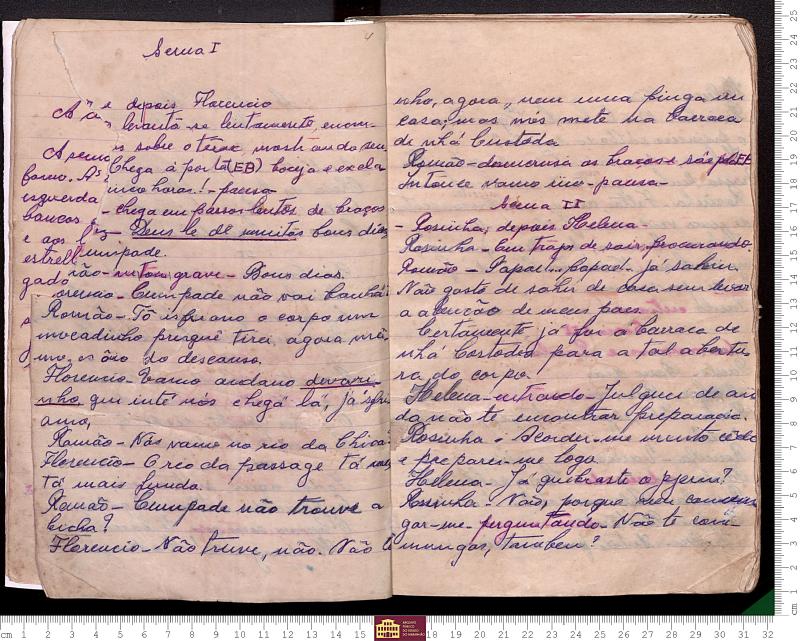 Scena I
e depois Florencio
levanta-se lentamente,
A scena
sobre o
chega á porta (EB) boceja e excla
horas! - pausa
esquerda
- chega em passos lentos, de braços
bancos
- Deus le dê muitos bons dias
e aos
estrell
cumpade.
gado
mão - em tom grave - Bons dias.
orencio - Cumpade não vai banhá?
Romão - Tô isfriano o corpo um
mocadinho purquê tirei, agora mê
mo, o do descanso.
Florencio - Vamo andano devari-
nho qui inté nós chegá lá, já isfri
amo,
Romão - Nós vamo no rio da Chica?
Florencio - O rio da passage tá
tá mais fundo.
Romão - Cumpade não trouve a
bicha?
Florencio - Não truve, não. Não te
nho, agora, nem uma pinga in
casa; mas nós mete na barraca
de nhá Custoda
Romão - os braços e sáe pla EE
Intonce vamo - pausa -
Scena II
- Rosinha, depois Helena -
Rosinha - Em traje de sair, procurando.
Romão - Papai!... papai!.. já sahiu.
Não gosto de sahir de casa sem levar
a a benção de meus paes.
Certamente já foi a barraca de
nhá Costodia para a tal abertu
ra do corpo.
Helena - entrando - Julguei de ain
da não te encontrar preparada.
Rosinha - Acordei-me muito cêdo
e preparei-me logo.
Helena - Já quebraste o jejum?
Rosinha - Não, porque vou commun
gar-me - perguntando - Não te com-
mungas, tambem?
ARQUIVO PÚBLICO DO ESTADO DO MARANHÃO